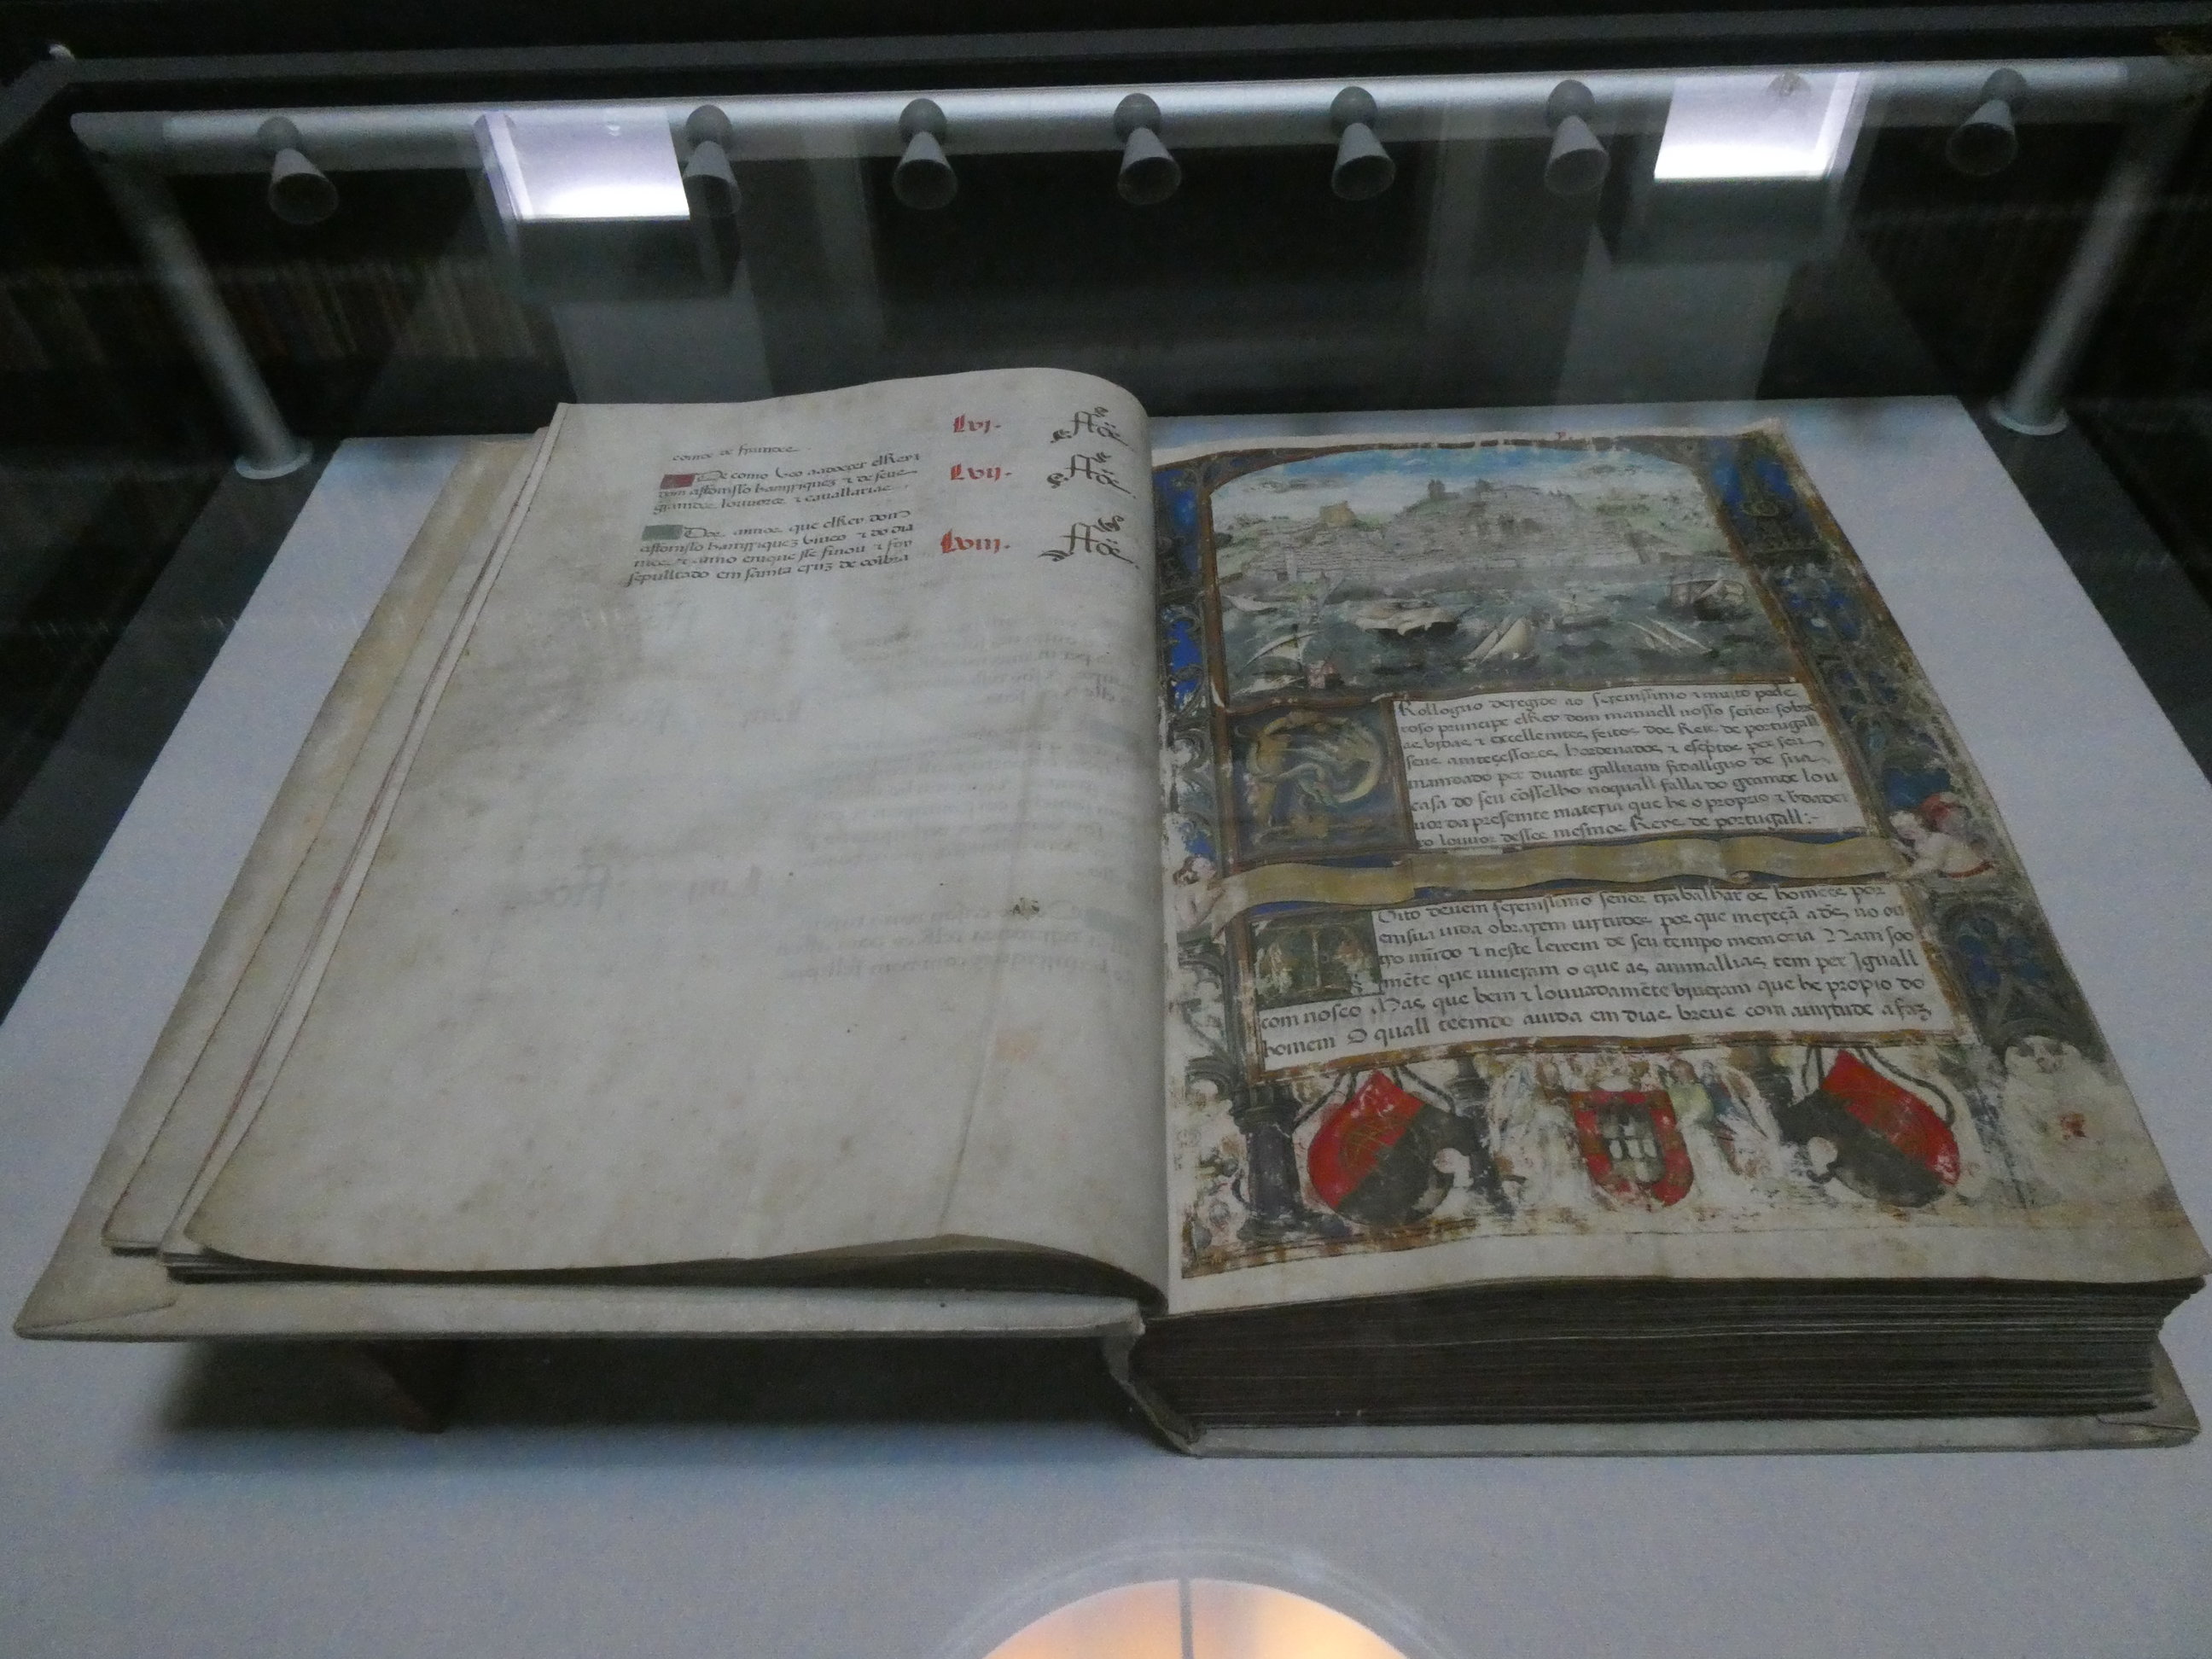 conde de frandes.
De como veo a adoeçer elRey
dom affomsso hamrriquez & de seus
grandes louuores & cauallarias
Lvj.
Lvij.
Dos annos que elRey dom
affomsso hamrriquez viueo & do dia
mes & anno em que sse finou & foy
sepulltado em samta cruz de coĩbra
Lviij.
Rolloguo deregido ao serenissimo & muito pode
roso principe elRey dom manuell nosso señor sobre
as vidas & excellemtes feitos dos Reis de portugall
seus amteçessores hordenados & esc̃ptos per seu
mamdado per duarte galluam fidallguo de sua
casa do seu cõsselho no quall falla do gramde lou
uor da presemte materia que he o proprio & v̓dadei
ro louuor desses mesmos Reys de portugall:-
Vito deuem serenissimo señor trabalhar os homẽes por
em sua uida obrarem uirtudes por que mereçã a dẽs no ou
tro mũdo & neste leixem de seu tempo memoria Nam soo
mẽte que uiueram o que as animallias tem per Iguall
com nosco Mas que bem & louuadamẽte viueram que he propio do
homem O quall teemdo auida em dias breue com a uirtude a faz